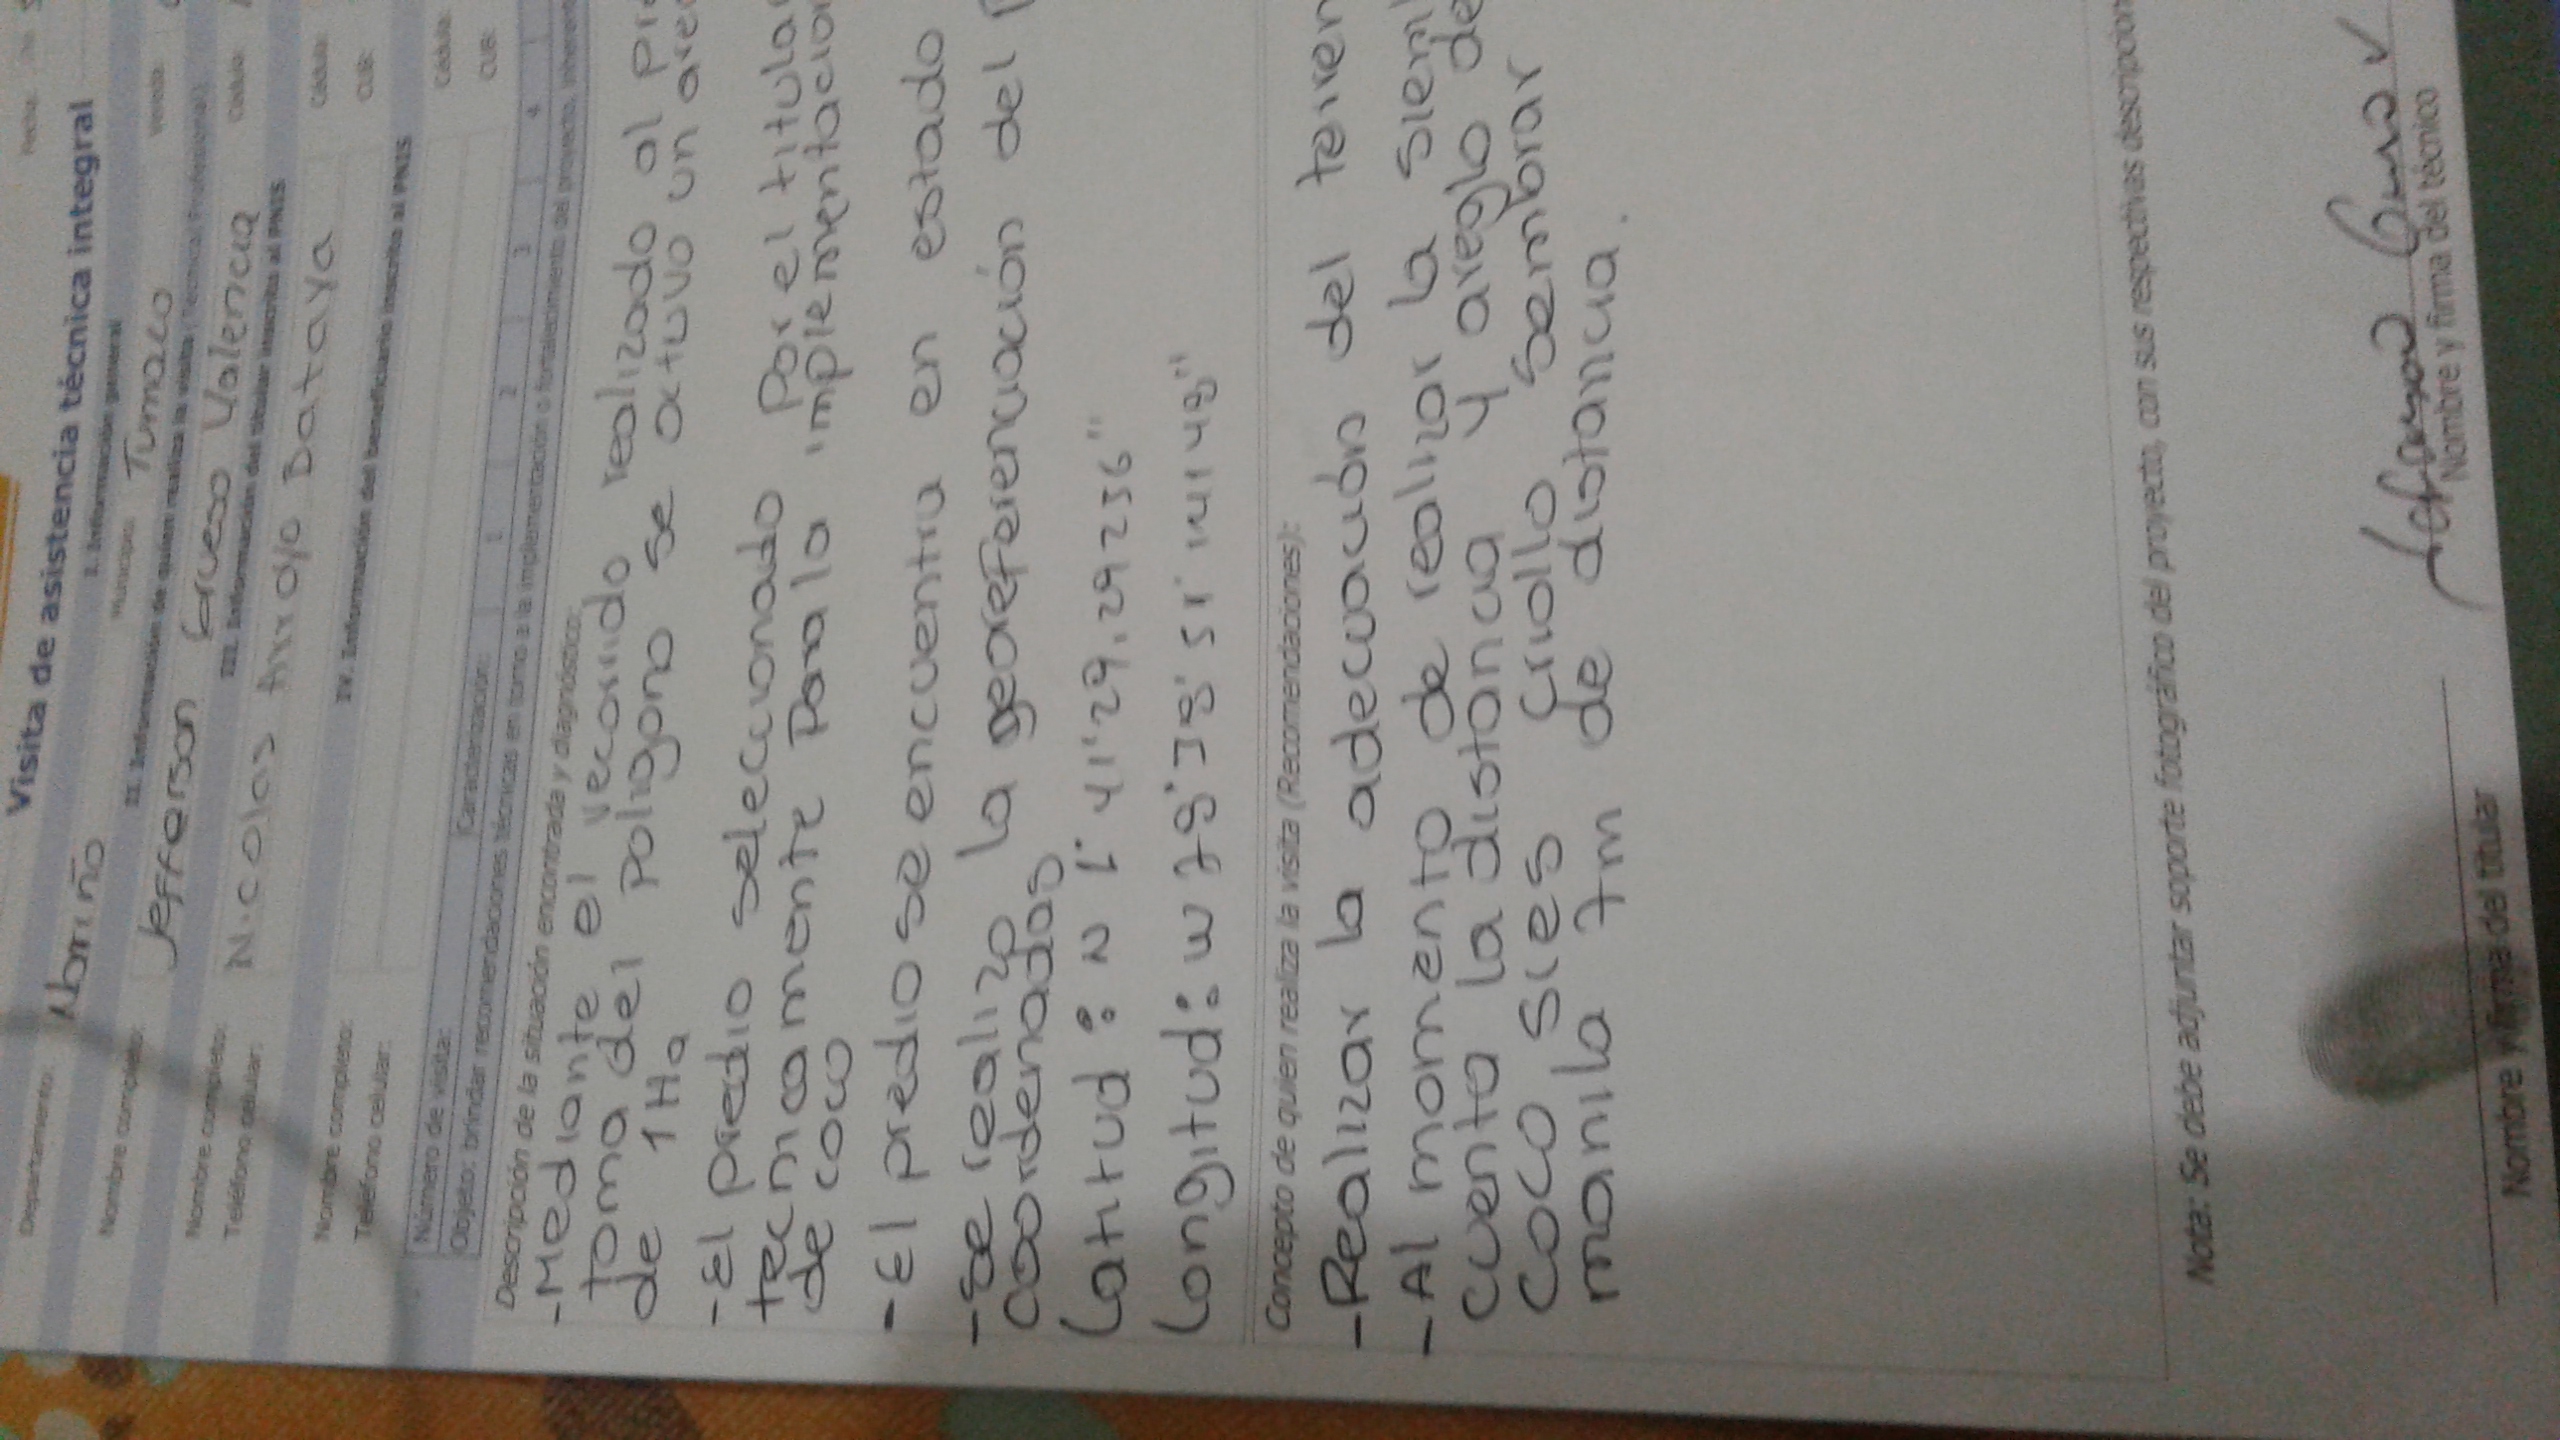 Visita de asistencia técnica integral
Fecha:
I. Información general
Departamento: Nariño Municipio: Tumaco Vereda:
II. Información de quien realiza la visita (Técnico/Profesional)
Nombre completo: Jefferson Grueso Valencia Cédula:
III. Información del titular inscrito al PNIS
Nombre completo: Nicolas Cédula:
Teléfono celular: CUB:
IV. Información del beneficiario inscrito al PNIS
Nombre completo: Cédula:
Teléfono celular: CUB:
Número de visita: Caracterización: 1 2 3 4
Objeto: brindar recomendaciones técnicas en torno a la implementación o fortalecimiento del proyecto.
Descripción de la situación encontrada y diagnóstico:
-Mediante el recorrido realizado al pre
toma del poligono se octuvo un area
de 1Ha
-El predio seleccionado por el titular
tecnicamente Para la implementacion
de coco
-El predio se encuentra en estado
-Se realizo la georeferenciación del P
coordenadas
Latitud: N 1° 41' 29,29236"
Longitud: W
Concepto de quien realiza la visita (Recomendaciones):
-Realizar la adecuación del terren
-Al momento de realizar la siem
cuenta la distancia y areglo de
coco si es criollo sembrar
manila 7m de distancia.
Nota: Se debe adjuntar soporte fotográfico del proyecto, con sus respectivas descripcion
Nombre y firma del titular
Nombre y firma del técnico